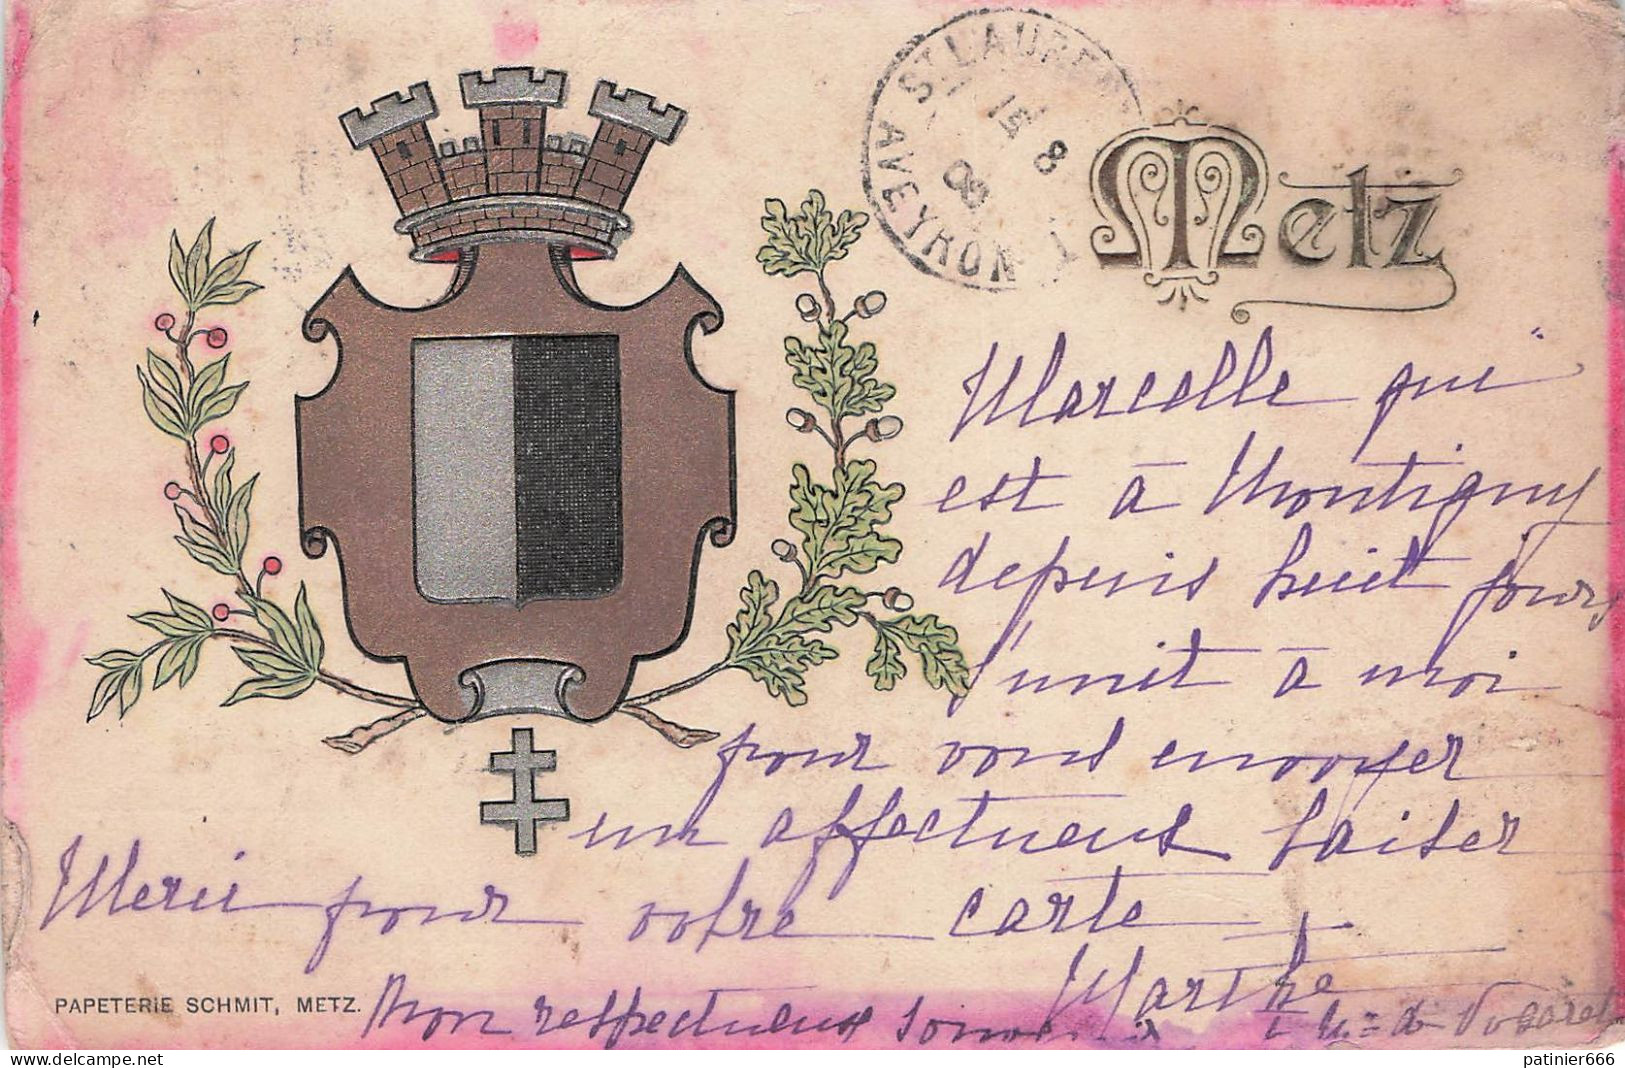 ST LAURENT
AVEYRON
15 8
08
Metz
Marcelle qui
est à Montigny
depuis huit jours
s'unit à moi
pour vous envoyer
un affectueux baiser
Merci pour votre carte
Marthe
PAPETERIE SCHMIT, METZ.
Mon respectueux
delcampe.net
patinier666